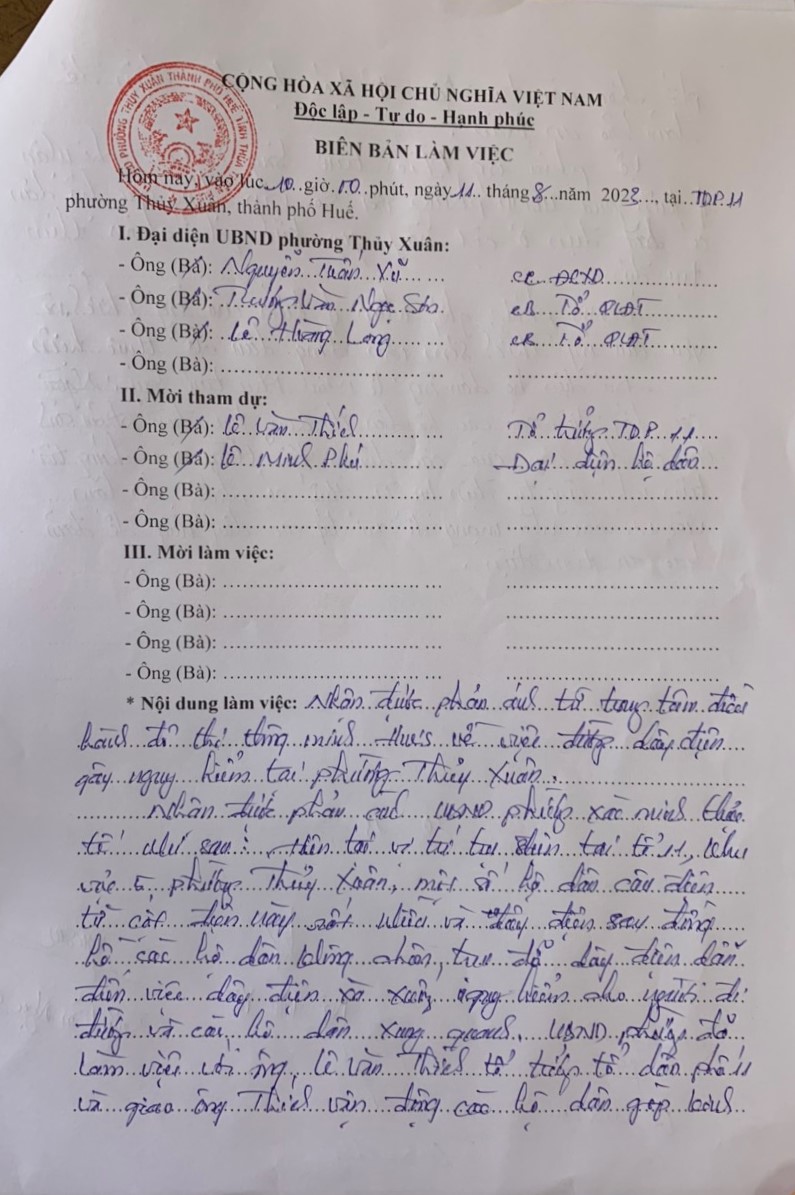 CỘNG HÒA XÃ HỘI CHỦ NGHĨA VIỆT NAM
Độc lập - Tự do - Hạnh phúc
BIÊN BẢN LÀM VIỆC
Hôm nay, vào lúc 10 giờ 10 phút, ngày 11 tháng 8 năm 2023, tại TDP.11
phường Thủy Xuân, thành phố Huế.
I. Đại diện UBND phường Thủy Xuân:
- Ông (Bà): Nguyễn Tuấn Vũ CC. ĐCXD
- Ông (Bà): Ngọc CB Tổ QLĐT
- Ông (Bà): Lê Hoàng Long CB Tổ QLĐT
- Ông (Bà):
II. Mời tham dự:
- Ông (Bà): Lê Văn Thiết Tổ trưởng TDP 11
- Ông (Bà): Lê Minh Phú Đại diện hộ dân
- Ông (Bà):
- Ông (Bà):
III. Mời làm việc:
- Ông (Bà):
- Ông (Bà):
- Ông (Bà):
- Ông (Bà):
* Nội dung làm việc: Nhận được phản ánh từ trung tâm điều
hành đô thị thông minh HueS về việc đường dây điện
gây nguy hiểm tại phường Thủy Xuân.
Nhận được phản ánh UBND phường xác minh thực
tế như sau: Hiện tại vị trí tại tổ 11, khu
vực 5, phường Thủy Xuân, một số hộ dân câu điện
từ cột điện này rất nhiều và dây điện sau đồng
hồ các hộ dân không do dây điện dẫn
đến việc dây điện nguy hiểm cho người đi
đường và các hộ dân xung quanh. UBND phường đã
làm việc với ông Lê Văn Thiết tổ trưởng tổ dân phố 11
và giao ông Thiết vận động các hộ dân góp kinh